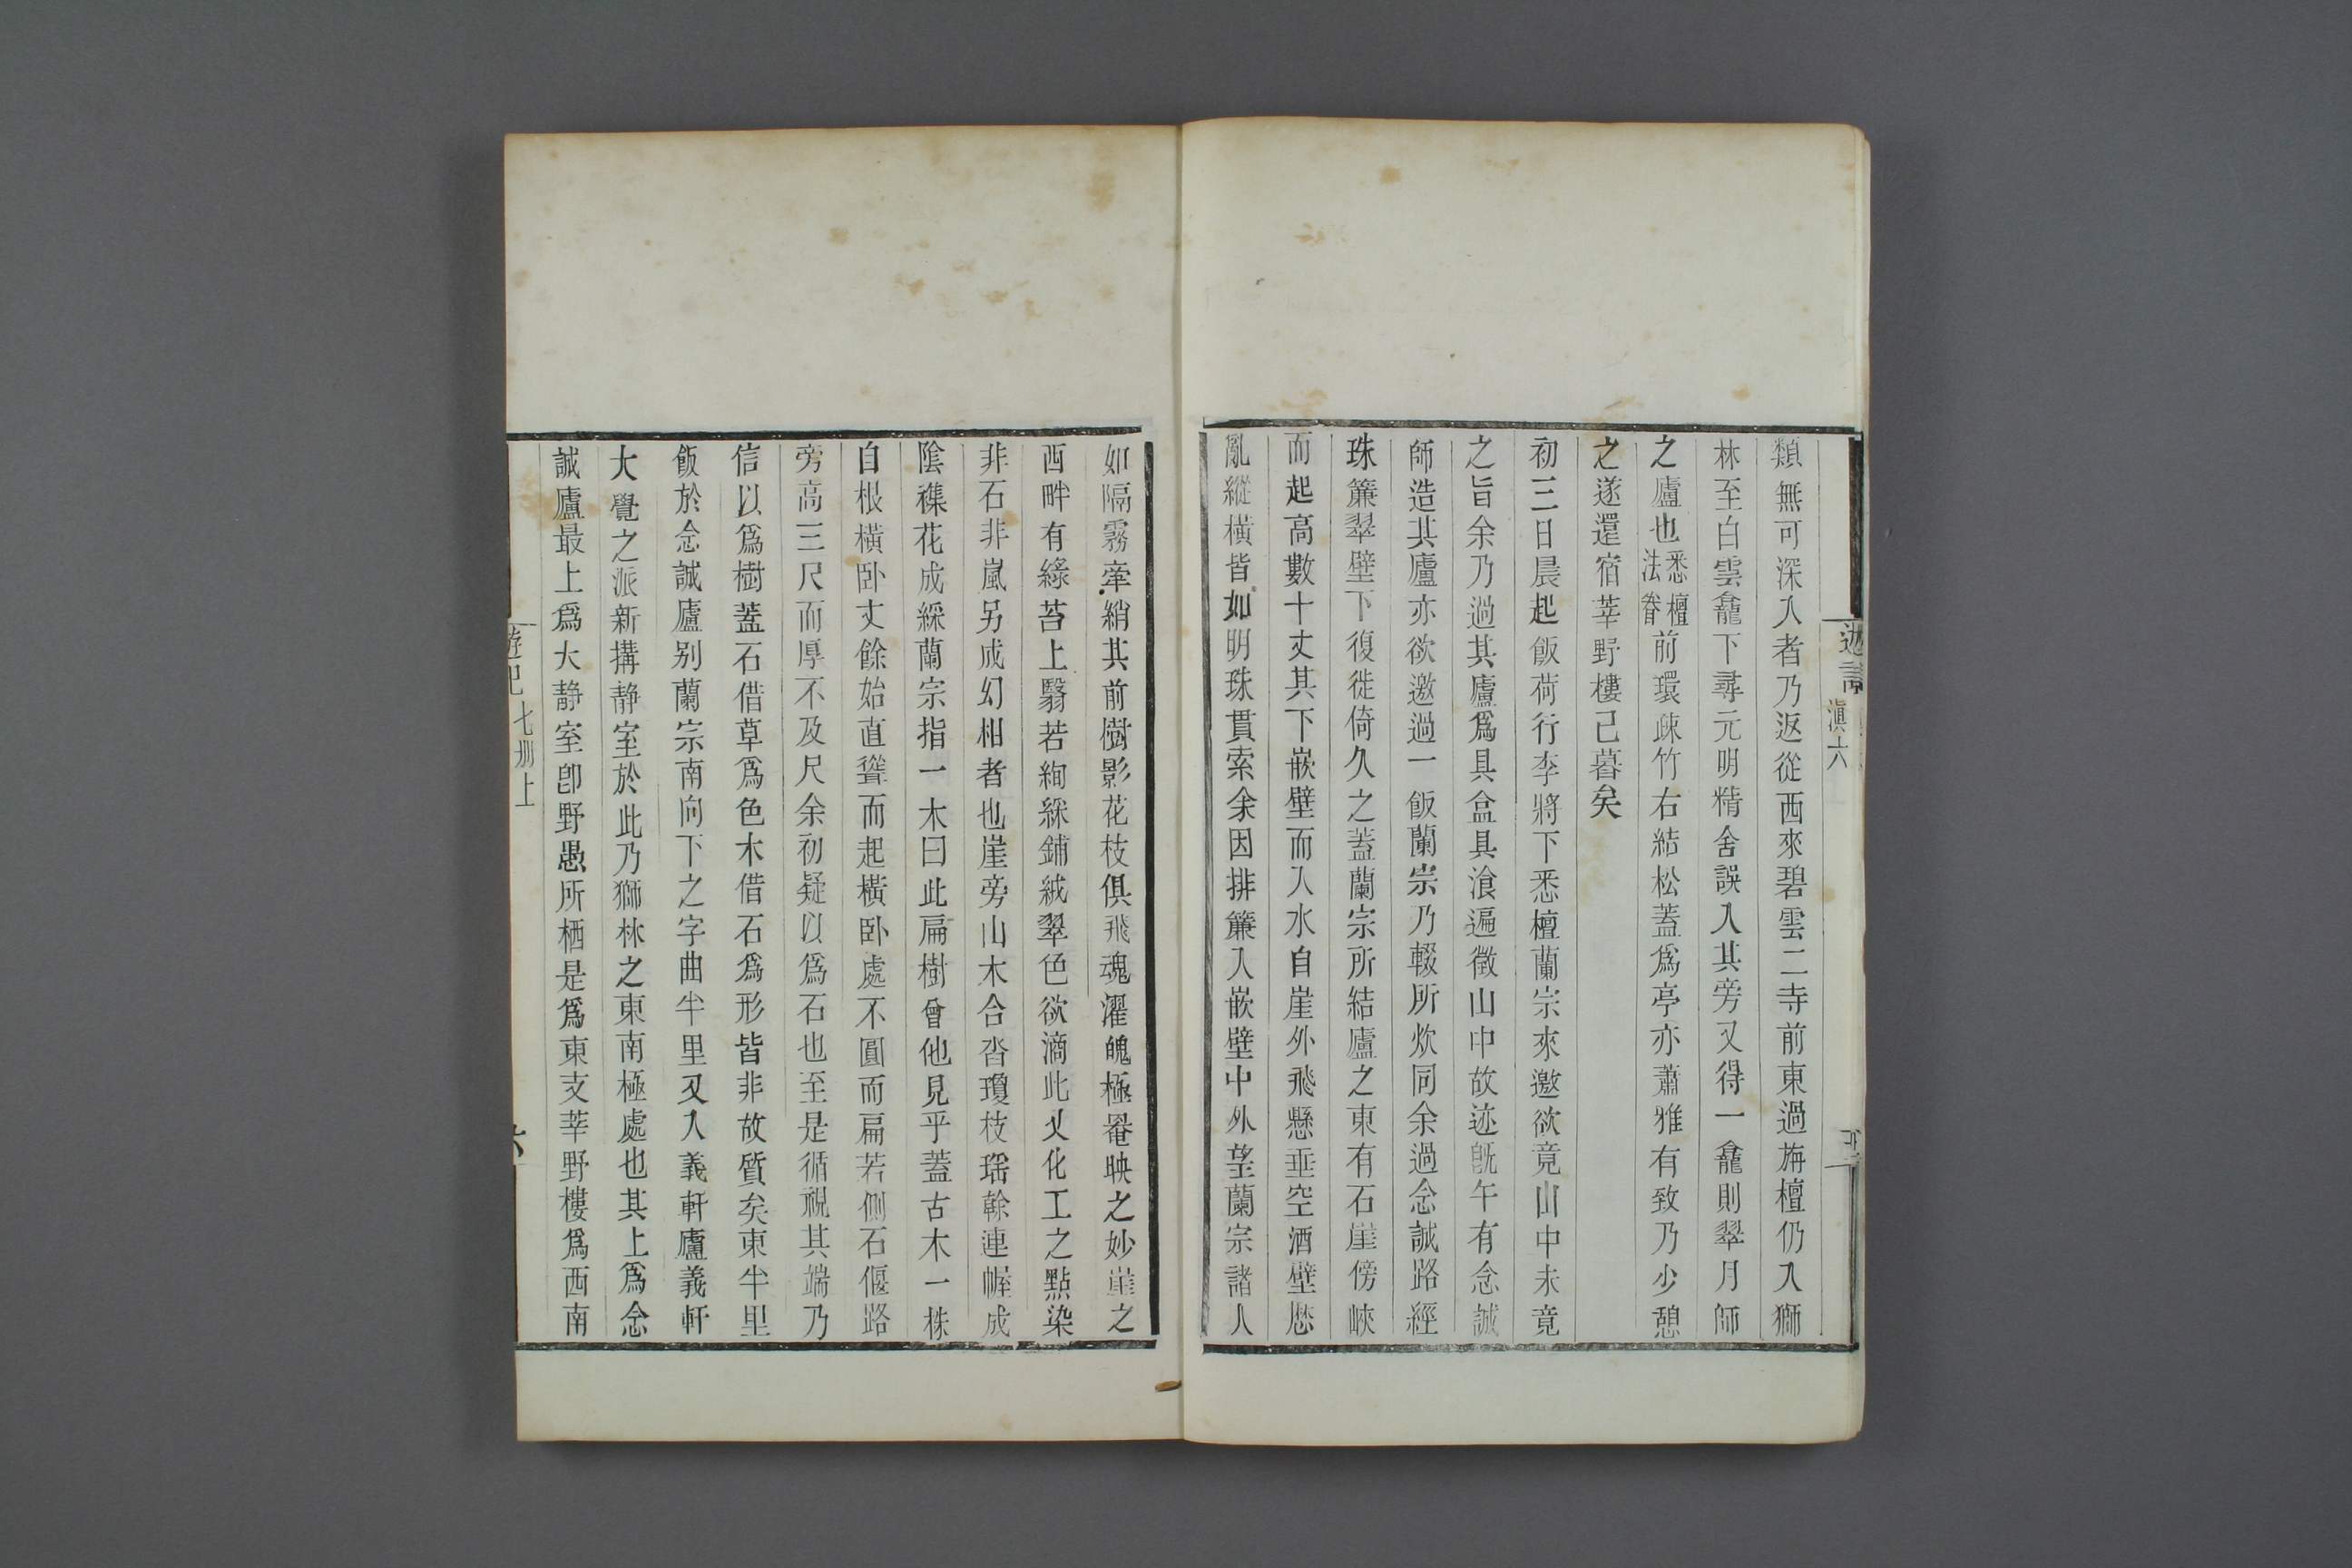 類無可深入者乃返從西來碧雲二寺前東過旃檀仍入獅
林至白雲龕下尋元明精舍誤入其旁又得一龕則翠月師
之廬也悉檀法眷前環疎竹右結松蓋爲亭亦蕭雅有致乃少憩
之遂還宿莘野樓已暮矣
初三日晨起飯荷行李將下悉檀蘭宗來邀欲竟山中未竟
之旨余乃過其廬爲具盒具湌遍徵山中故迹旣午有念誠
師造其廬亦欲邀過一飯蘭宗乃輟所炊同余過念誠路經
珠簾翠壁下復徙倚久之蓋蘭宗所結廬之東有石崖傍峽
而起高數十丈其下嵌壁而入水自崖外飛懸垂空洒壁歷
亂縱橫皆如明珠貫索余因排簾入嵌壁中外望蘭宗諸人
如隔霧牽綃其前樹影花枝俱飛魂濯魄極罨映之妙崖之
西畔有綠苔上翳若絢綵鋪絨翠色欲滴此又化工之點染
非石非嵐另成幻相者也崖旁山木合沓瓊枝瑶幹連幄成
陰襍花成綵蘭宗指一木曰此扁樹曾他見乎蓋古木一株
自根橫卧丈餘始直聳而起橫卧處不圓而扁若側石偃路
旁高三尺而厚不及尺余初疑以爲石也至是循視其端乃
信以爲樹蓋石借草爲色木借石爲形皆非故質矣東半里
飯於念誠廬别蘭宗南向下之字曲半里又入義軒廬義軒
大覺之派新搆静室於此乃獅林之東南極處也其上爲念
誠廬最上爲大静室卽野愚所栖是爲東支莘野樓爲西南
遊記
滇六
七册上
六